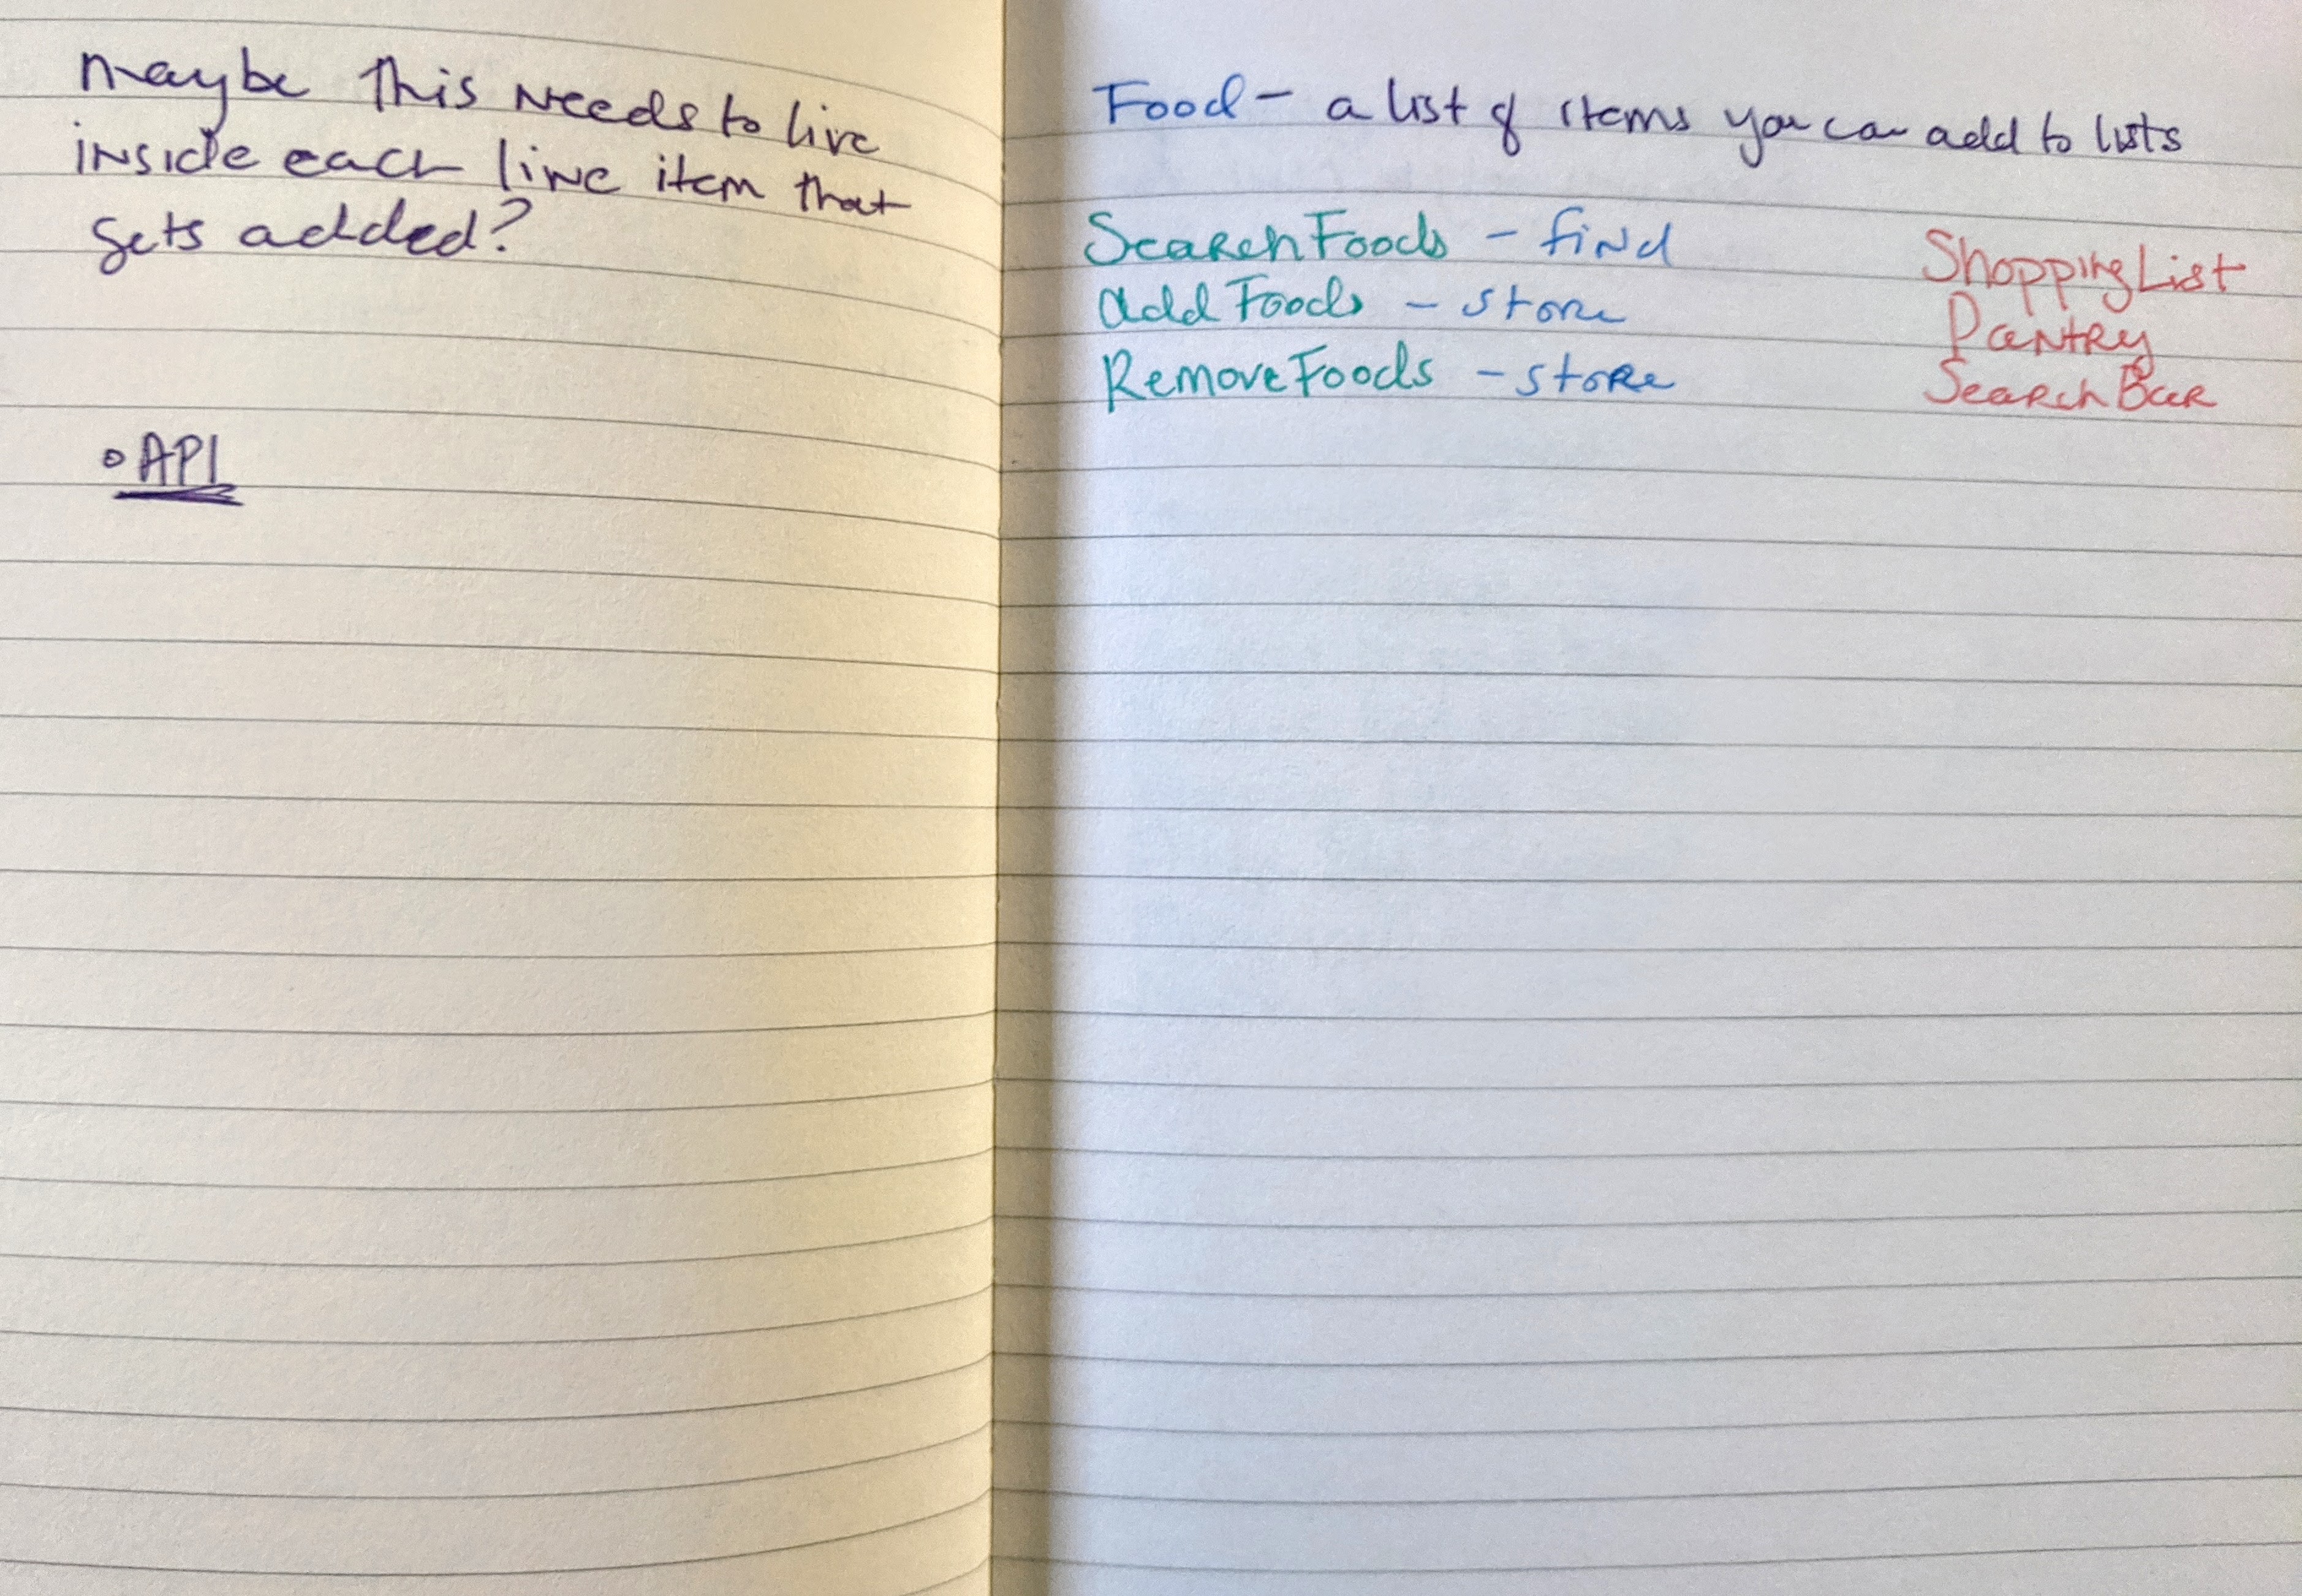 maybe this needs to live
inside each line item that
gets added?
• API
Food - a list of items you can add to lists
SearchFoods - find
addFoods - store
RemoveFoods - store
ShoppingList
Pantry
SearchBar